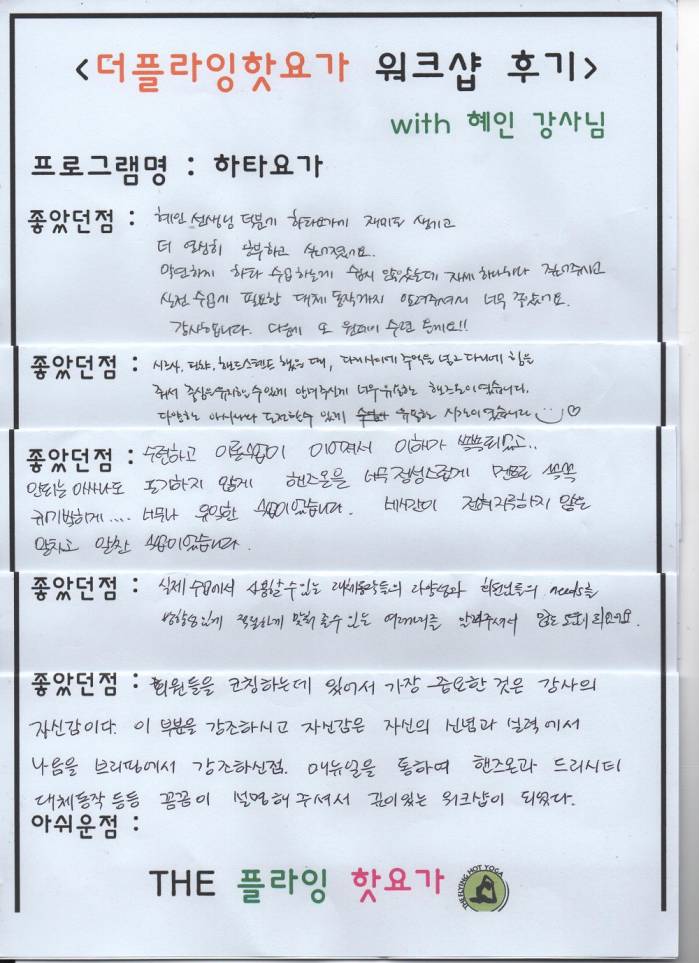 <더플라잉핫요가 워크샵 후기>
with 혜인 강사님
프로그램명 : 하타요가
좋았던점 : 혜인 선생님 덕분에 하타요가에 재미도 생기고
더 열심히 공부하고 싶어졌어요.
막연하게 하타 수업하는게 쉽지 않았는데 자세 하나하나 짚어주시고
실전 수업에 필요한 대체 동작까지 알려주셔서 너무 좋았어요.
감사합니다. 다음에 또 원데이 수련 올게요!!
좋았던점 : 시르사, 핸드스탠드 했을 때, 다리사이에 주먹을 넣고 다리에 힘을
줘서 중심을 유지할 수 있게 알려주신게 너무 유익한 핸즈온이었습니다.
다양한 아사나 도전할 수 있게 유익한 시간이었습니다
좋았던점 : 수련하고 이론수업이 이어져서 이해가 쏙쏙되었고..
안되는 아사나도 포기하지 않게 핸즈온을 너무 정성스럽게 멘트도 쏙쏙
귀에박히게.... 너무나 유익한 수업이었습니다. 네시간이 전혀 지루하지 않은
알차고 알찬 수업이었습니다.
좋았던점 : 실제 수업에서 사용할 수 있는 대체동작들의 다양성과 회원님들의 needs를
방향성있게 적절하게 맞춰 줄 수 있는 여러가지를 알려주셔서 많은 도움이 되었어요.
좋았던점 : 회원들을 코칭하는데 있어서 가장 중요한 것은 강사의
자신감이다. 이 부분을 강조하시고 자신감은 자신의 신념과 실력에서
나옴을 브리핑에서 강조하신점. 매뉴얼을 통하여 핸즈온과 드리시티
대체동작 등등 꼼꼼이 설명해 주셔서 깊이있는 워크샵이 되었다.
아쉬운점 :
THE 플라잉 핫요가
THE FLYING HOT YOGA